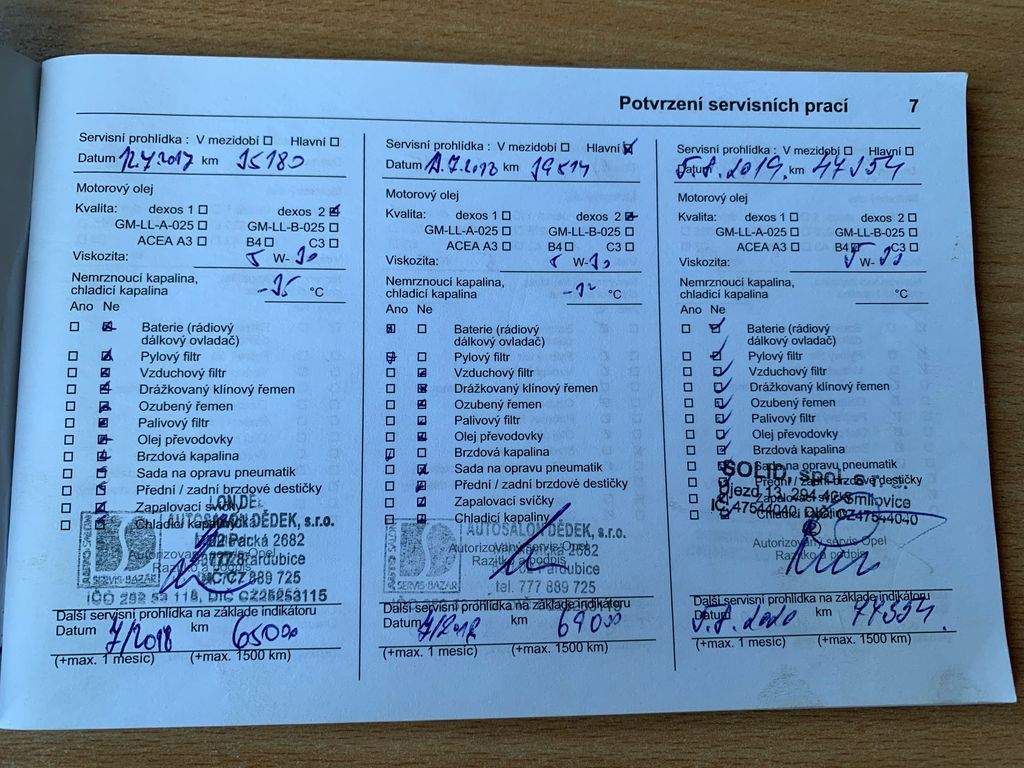 Potvrzení servisních prací 7
Servisní prohlídka : V mezidobí Hlavní
Datum 12.7.2017 km
Motorový olej
Kvalita: dexos 1 dexos 2
GM-LL-A-025 GM-LL-B-025
ACEA A3 B4 C3
Viskozita: 5 W-30
Nemrznoucí kapalina,
chladicí kapalina °C
Ano Ne
Baterie (rádiový
dálkový ovladač)
Pylový filtr
Vzduchový filtr
Drážkovaný klínový řemen
Ozubený řemen
Palivový filtr
Olej převodovky
Brzdová kapalina
Sada na opravu pneumatik
Přední / zadní brzdové destičky
Zapalovací svíčky
Chladicí kapaliny
AUTOSALON DĚDEK, s.r.o.
Pardubice
Autorizovaný servis Opel
Razítko a podpis
SERVIS-BAZAR
889 725
Další servisní prohlídka na základě indikátoru
Datum 7/2018 km 65000
(+max. 1 měsíc) (+max. 1500 km)
Servisní prohlídka : V mezidobí Hlavní
Datum km
Motorový olej
Kvalita: dexos 1 dexos 2
GM-LL-A-025 GM-LL-B-025
ACEA A3 B4 C3
Viskozita: 5 W-30
Nemrznoucí kapalina,
chladicí kapalina °C
Ano Ne
Baterie (rádiový
dálkový ovladač)
Pylový filtr
Vzduchový filtr
Drážkovaný klínový řemen
Ozubený řemen
Palivový filtr
Olej převodovky
Brzdová kapalina
Sada na opravu pneumatik
Přední / zadní brzdové destičky
Zapalovací svíčky
Chladicí kapaliny
AUTOSALON DĚDEK, s.r.o.
Autorizovaný servis Opel
Razítko a podpis
SERVIS-BAZAR
tel. 777 889 725
Další servisní prohlídka na základě indikátoru
Datum km 69000
(+max. 1 měsíc) (+max. 1500 km)
Servisní prohlídka : V mezidobí Hlavní
Datum 5.8.2019. km 47354
Motorový olej
Kvalita: dexos 1 dexos 2
GM-LL-A-025 GM-LL-B-025
ACEA A3 B4 C3
Viskozita: 5 W-30
Nemrznoucí kapalina,
chladicí kapalina °C
Ano Ne
Baterie (rádiový
dálkový ovladač)
Pylový filtr
Vzduchový filtr
Drážkovaný klínový řemen
Ozubený řemen
Palivový filtr
Olej převodovky
Brzdová kapalina
Sada na opravu pneumatik
Přední / zadní brzdové destičky
Zapalovací svíčky
Chladicí kapaliny
SOLID, spol. s r.o.
Újezd 13, 294 42 Smilovice
IČ:47544040, DIČ: CZ47544040
Autorizovaný servis Opel
Razítko a podpis
Další servisní prohlídka na základě indikátoru
Datum 5.8.2020 km 77354.
(+max. 1 měsíc) (+max. 1500 km)